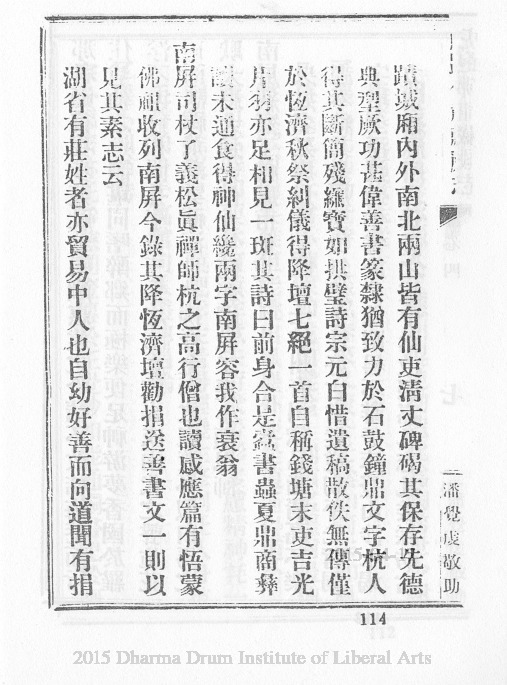 蹟城廂內外南北兩山皆有仙吏清丈碑碣其保存先德
典型厥功甚偉善書篆隸猶致力於石鼓鐘鼎文字杭人
得其斷簡殘縑寶如拱璧詩宗元白惜遺稿散佚無傳僅
於恆濟秋祭糾儀得降壇七絕一首自稱錢塘末吏吉光
片羽亦足相見一斑其詩曰前身合是蠧書蟲夏鼎商彝
讀未通食得神仙纔兩字南屏容我作衰翁
南屏司杖了義松眞禪師杭之高行僧也讀感應篇有悟蒙
佛祖收列南屏今錄其降恆濟壇勸捐送善書文一則以
見其素志云
湖省有莊姓者亦貿易中人也自幼好善而向道聞有捐
潘覺虔敬助
114
2015 Dharma Drum Institute of Liberal Arts